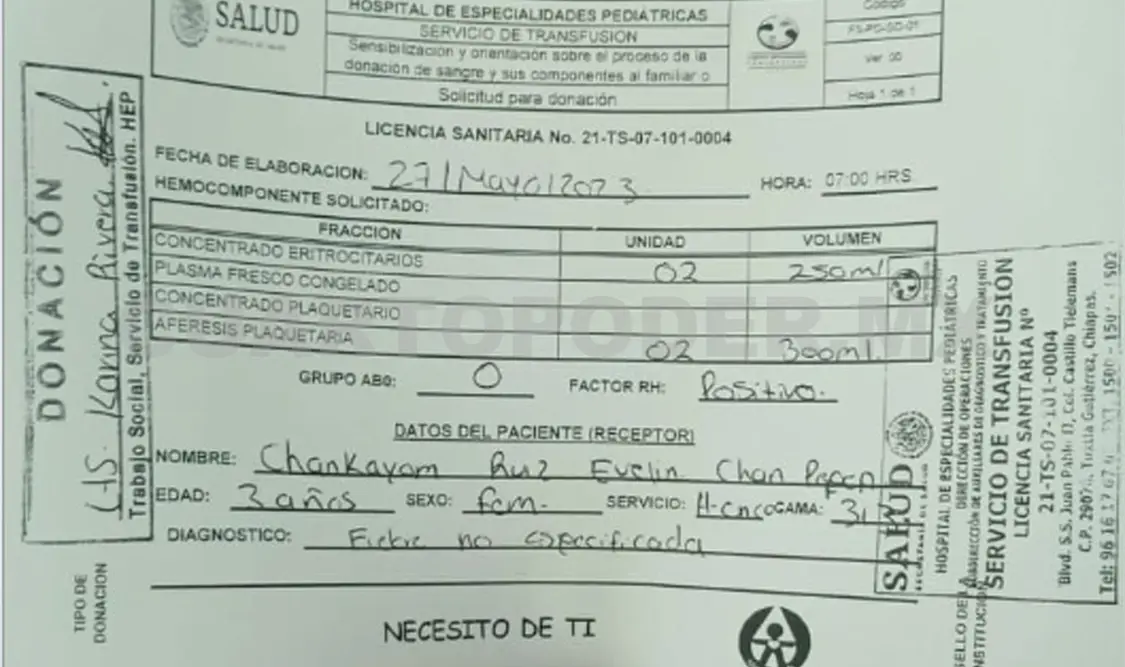 SALUD
HOSPITAL DE ESPECIALIDADES PEDIÁTRICAS
SERVICIO DE TRANSFUSION
Sensibilización y orientación sobre el proceso de la
donación de sangre y sus componentes al familiar o
Solicitud para donación
Código
Ver 00
Hoja 1 de 1
LICENCIA SANITARIA No. 21-TS-07-101-0004
FECHA DE ELABORACION: 27/Mayo/2023 HORA: 07:00 HRS
HEMOCOMPONENTE SOLICITADO:
FRACCION UNIDAD VOLUMEN
CONCENTRADO ERITROCITARIOS 02 250ml
PLASMA FRESCO CONGELADO
CONCENTRADO PLAQUETARIO
AFERESIS PLAQUETARIA 02 300ml.
GRUPO ABO: O FACTOR RH: Positivo.
DATOS DEL PACIENTE (RECEPTOR)
NOMBRE: Chankayom Ruiz Evelin Chan
EDAD: 3 años SEXO: fem. SERVICIO: H-Onco CAMA: 31
DIAGNOSTICO: Fiebre no especificada
TIPO DE
DONACION
NECESITO DE TI
DONACIÓN
Karina Rivera
Trabajo Social, Servicio de Transfusión. HEP
SALUD
SECRETARÍA DE SALUD
HOSPITAL DE ESPECIALIDADES PEDIÁTRICAS
DIRECCIÓN DE OPERACIONES
SUBDIRECCIÓN DE AUXILIARES DE DIAGNOSTICO Y TRATAMIENTO
SERVICIO DE TRANSFUSION
LICENCIA SANITARIA Nº
21-TS-07-101-0004
Blvd. S.S. Juan Pablo II, Col. Castillo Tielemans
C.P. 29070, Tuxtla Gutiérrez, Chiapas.
SELLO DE LA
INSTITUCION
CUARTOPODER.M